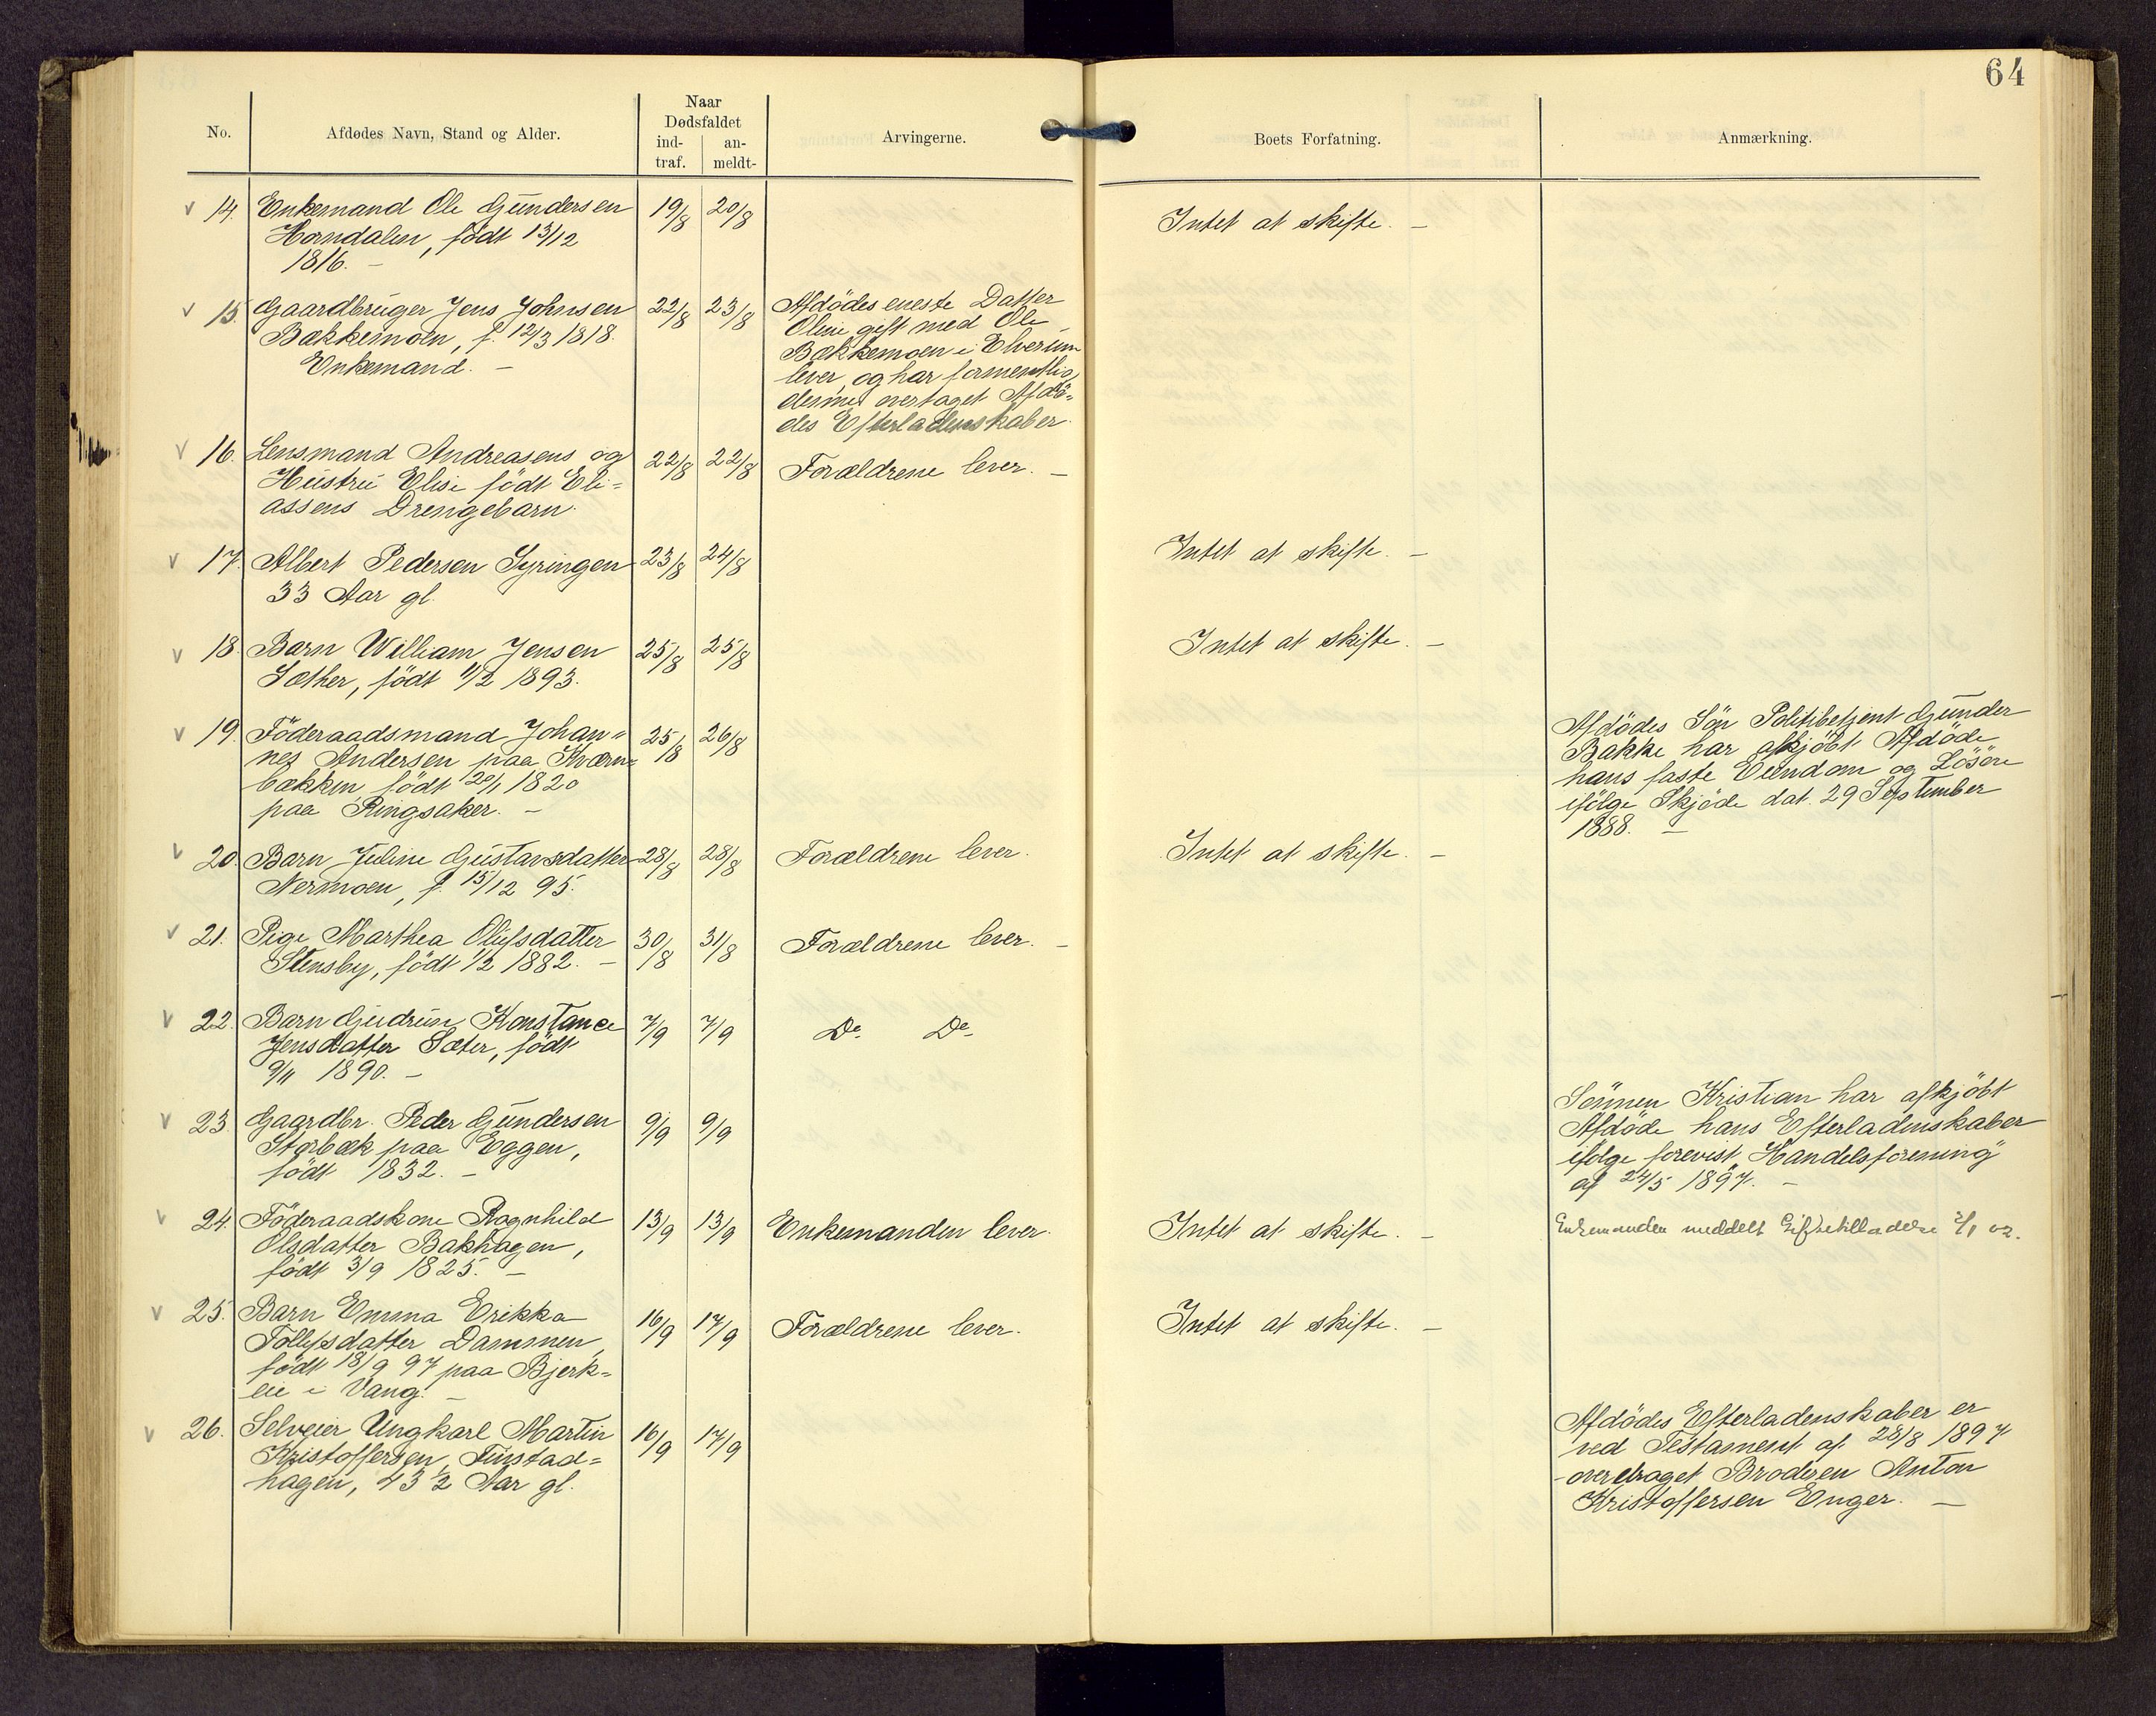 64
No.
Afdødes Navn, Stand og Alder.
Naar
Dødsfaldet
ind-
traf.
an-
meldt-
Arvingerne.
Boets Forfatning.
Anmærkning.
14. Enkemand Ole Gundersen 19/8 20/8 Intet at skifte. —
Horndalen, födt 13/12
1816. —
15. Gaardbruger Jens Johnsen 22/8 23/8 Afdödes eneste Datter
Bækkemoen, f. 12/3 1818.
Enkemand. —
Oline gift med Ole
Bækkemoen i Elverum
lever, og har formentlig
overtaget Afdö-
des Efterladenskaber.
16. Lensmand Andreasens og 22/8 22/8 Forældrene lever. —
Hustru Elise födt Eli-
assens Drengebarn.
17. Albert Pedersen Syringen 23/8 24/8 Intet at skifte. —
33 Aar gl.
18. Barn William Jensen 25/8 25/8 Intet at skifte. —
Sæther, födt 11/2 1893.
19. Föderaadsmand Johan- 25/8 26/8
nes Andersen paa Kværn-
bækken, födt 20/1 1820
paa Ringsaker. —
Afdödes Sön Politibetjent Gunder
Bakke har afkjöbt Afdöde
hans faste Eiendom og Lösöre
ifölge Skjöde dat. 29 September
1888. —
20. Barn Juline Gustavsdatter 28/8 28/8 Forældrene lever. Intet at skifte. —
Nermoen, f. 15/12 95.
21. Pige Marthea Olufsdatter 30/8 31/8 Forældrene lever. —
Stensby, födt 1/2 1882. —
22. Barn Gudrun Konstance 7/9 7/9 Do. Do.
Jensdatter Sæter, födt
9/11 1890. —
23. Gaardbr. Peder Gundersen 9/9 9/9
Storbæk paa Eggen,
födt 1832. —
Sönnen Kristian har afkjöbt
Afdöde hans Efterladenskaber
ifölge forevist Handelsforening
af 24/5 1897. —
24. Föderaadskone Ragnhild 13/9 13/9 Enkemanden lever. Intet at skifte. — Enkemanden meddelt Giftetilladelse 2/1 02.
Olsdatter Bakhagen,
födt 3/9 1825. —
25. Barn Emma Erikka 16/9 17/9 Forældrene lever. Intet at skifte. —
Tollefsdatter Dammen,
födt 18/9 97 paa Bjerk-
eie i Vang. —
26. Selveier Ungkarl Martin 16/9 17/9
Kristoffersen, Finstad-
hagen, 43 1/2 Aar gl.
Afdödes Efterladenskaber er
ved Testament af 28/8 1897
overdraget Broderen Anton
Kristoffersen Enger. —